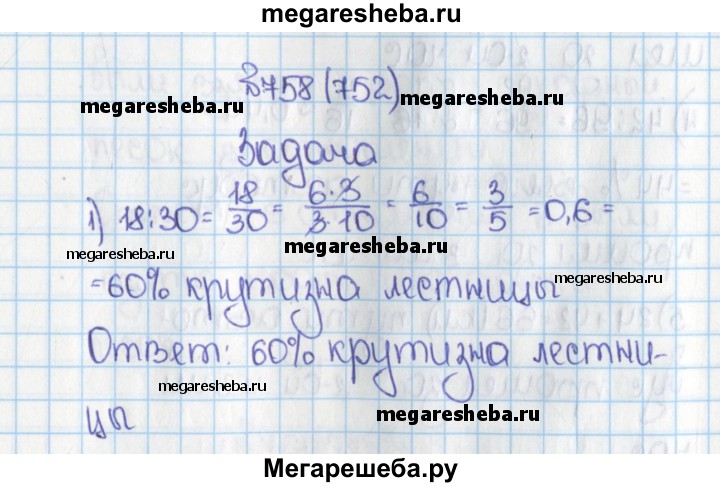 megaresheba.ru
№758 (752)
megaresheba.ru megaresheba.ru
Задача
1) 18:30 = 18/30 = 6·3/3·10 = 6/10 = 3/5 = 0,6 =
megaresheba.ru megaresheba.ru megaresheba.ru
=60% крутизна лестницы
Ответ: 60% крутизна лестни-
megaresheba.ru megaresheba.ru
цы
Мегарешеба.ру